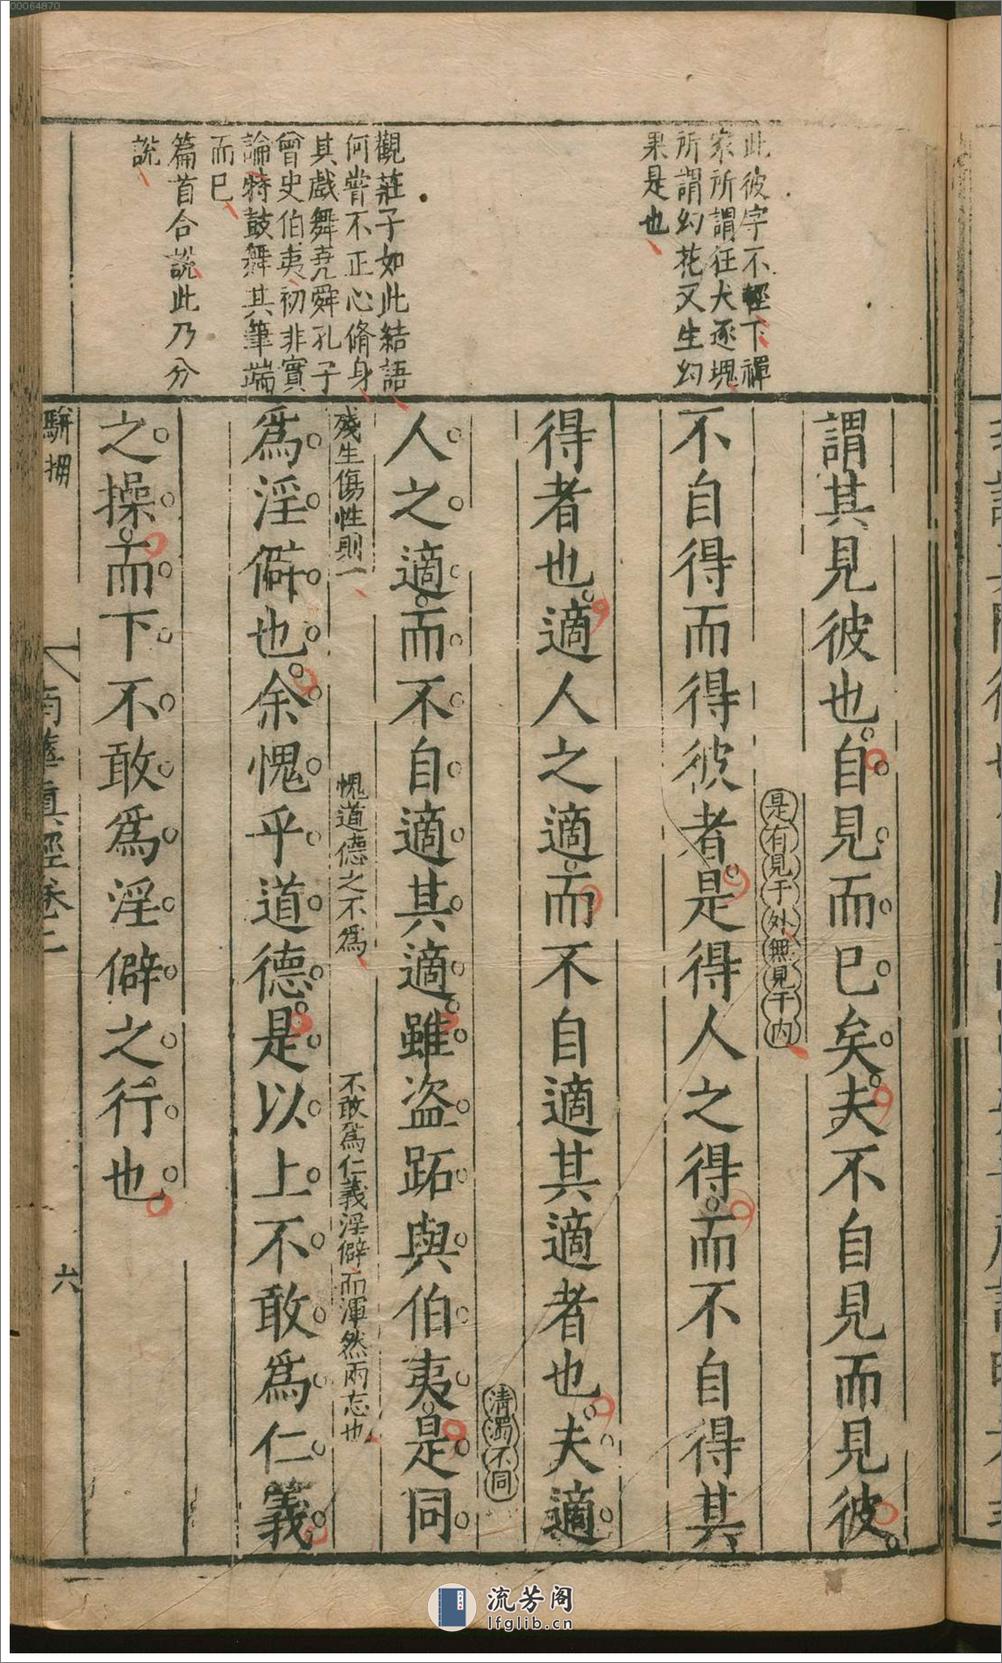 00064870
此彼字不輕下禪
家所謂狂犬逐塊
所謂幻花又生幻
果是也
觀莊子如此結語
何嘗不正心脩身
其戲舞堯舜孔子
曾史伯夷初非實
論特鼓舞其筆端
而已
篇首合說此乃分
說
謂其見彼也自見而已矣夫不自見而見彼
是有見于外無見于内
不自得而得彼者是得人之得而不自得其
得者也適人之適而不自適其適者也夫適
清濁不同
人之適而不自適其適雖盜跖與伯夷是同
殘生傷性則一
愧道德之不爲
不敢爲仁義淫僻而渾然兩忘也
爲淫僻也余愧乎道德是以上不敢爲仁義
之操而下不敢爲淫僻之行也
駢拇
南華真經卷二
六
流芳阁
lfglib.cn